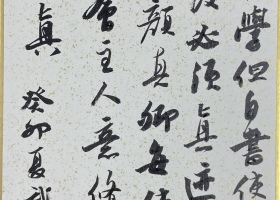 學但自書使
故必須真迹
顏真卿每使
會主人意修
真 癸卯夏